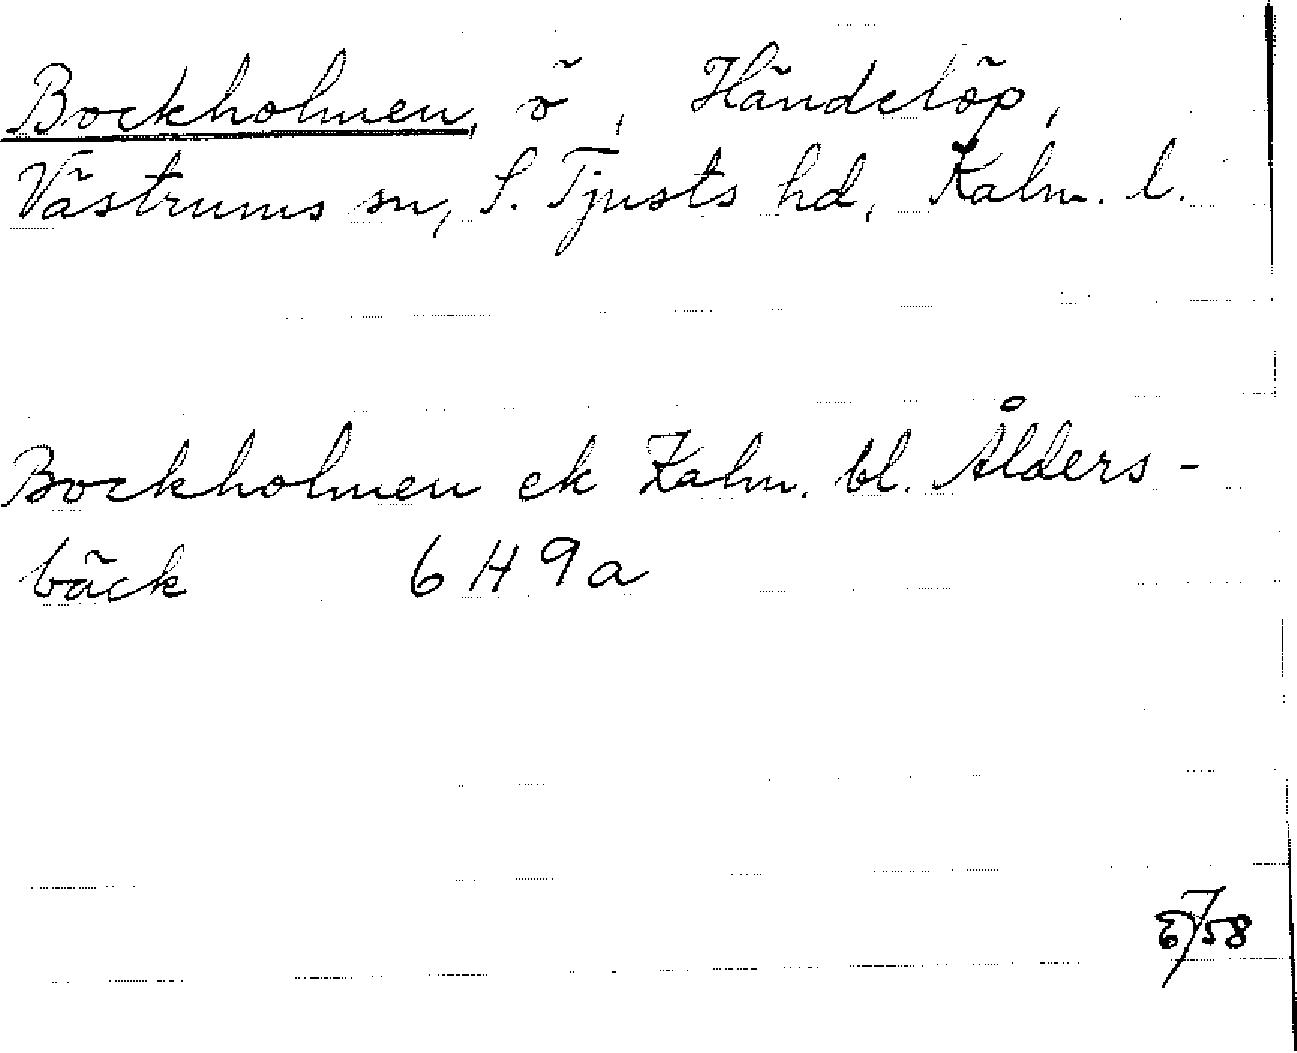 Bockholmen, ö, Händelöp,
Västrums sn, S. Tjusts hd, Kalm. l.
Bockholmen ek Kalm. bl. Ålders-
bäck 6 H 9 a